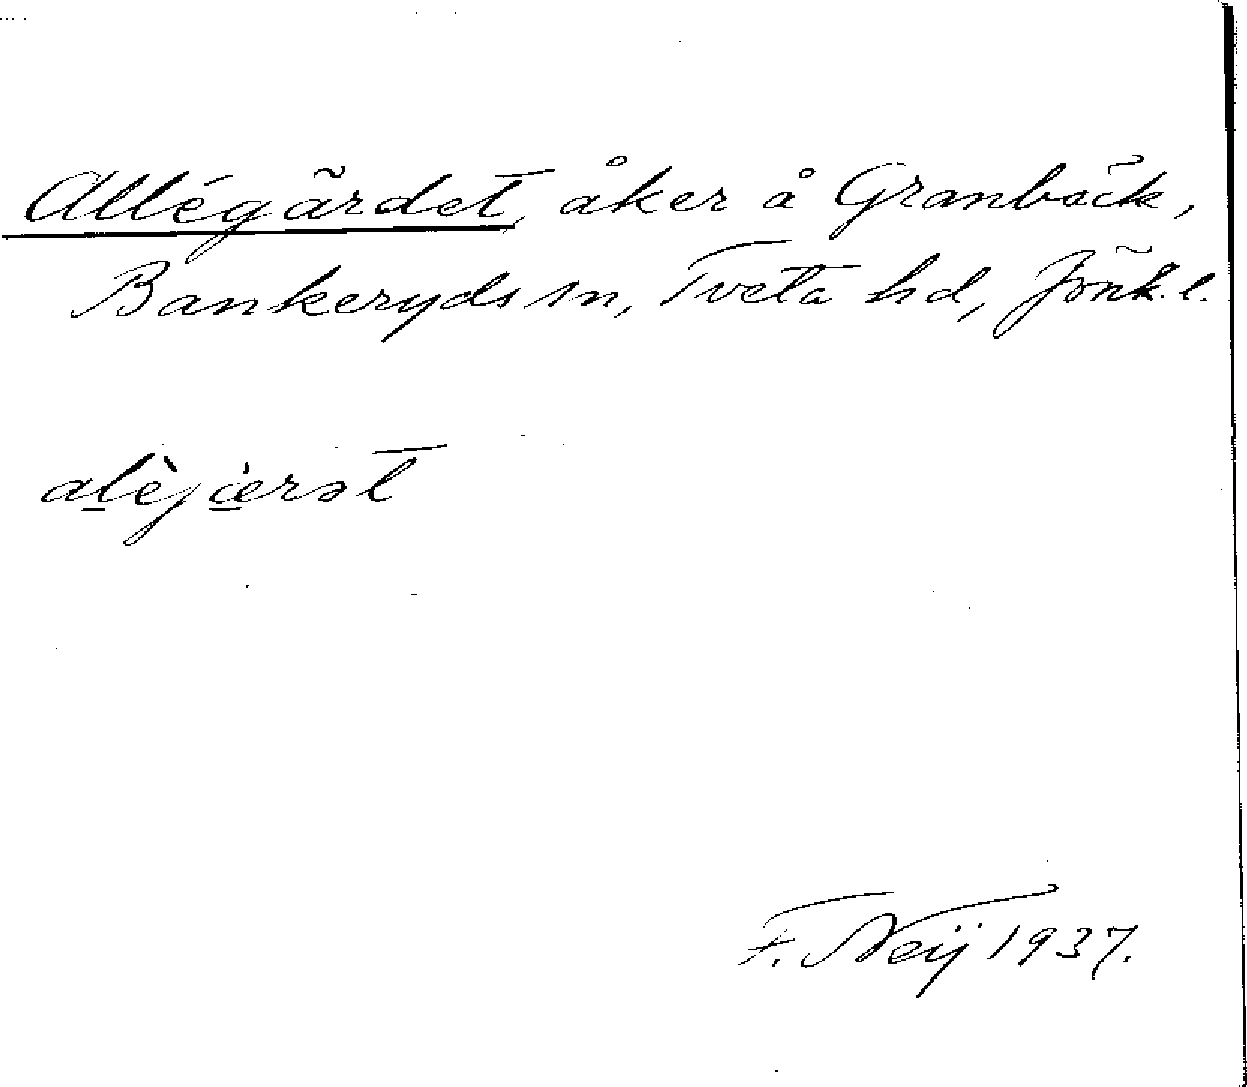 Allégärdet, åker å Granbäck,
Bankeryds sn, Tveta hd, Jönk. l.
alèjæ̀rət
F. Neij 1937.